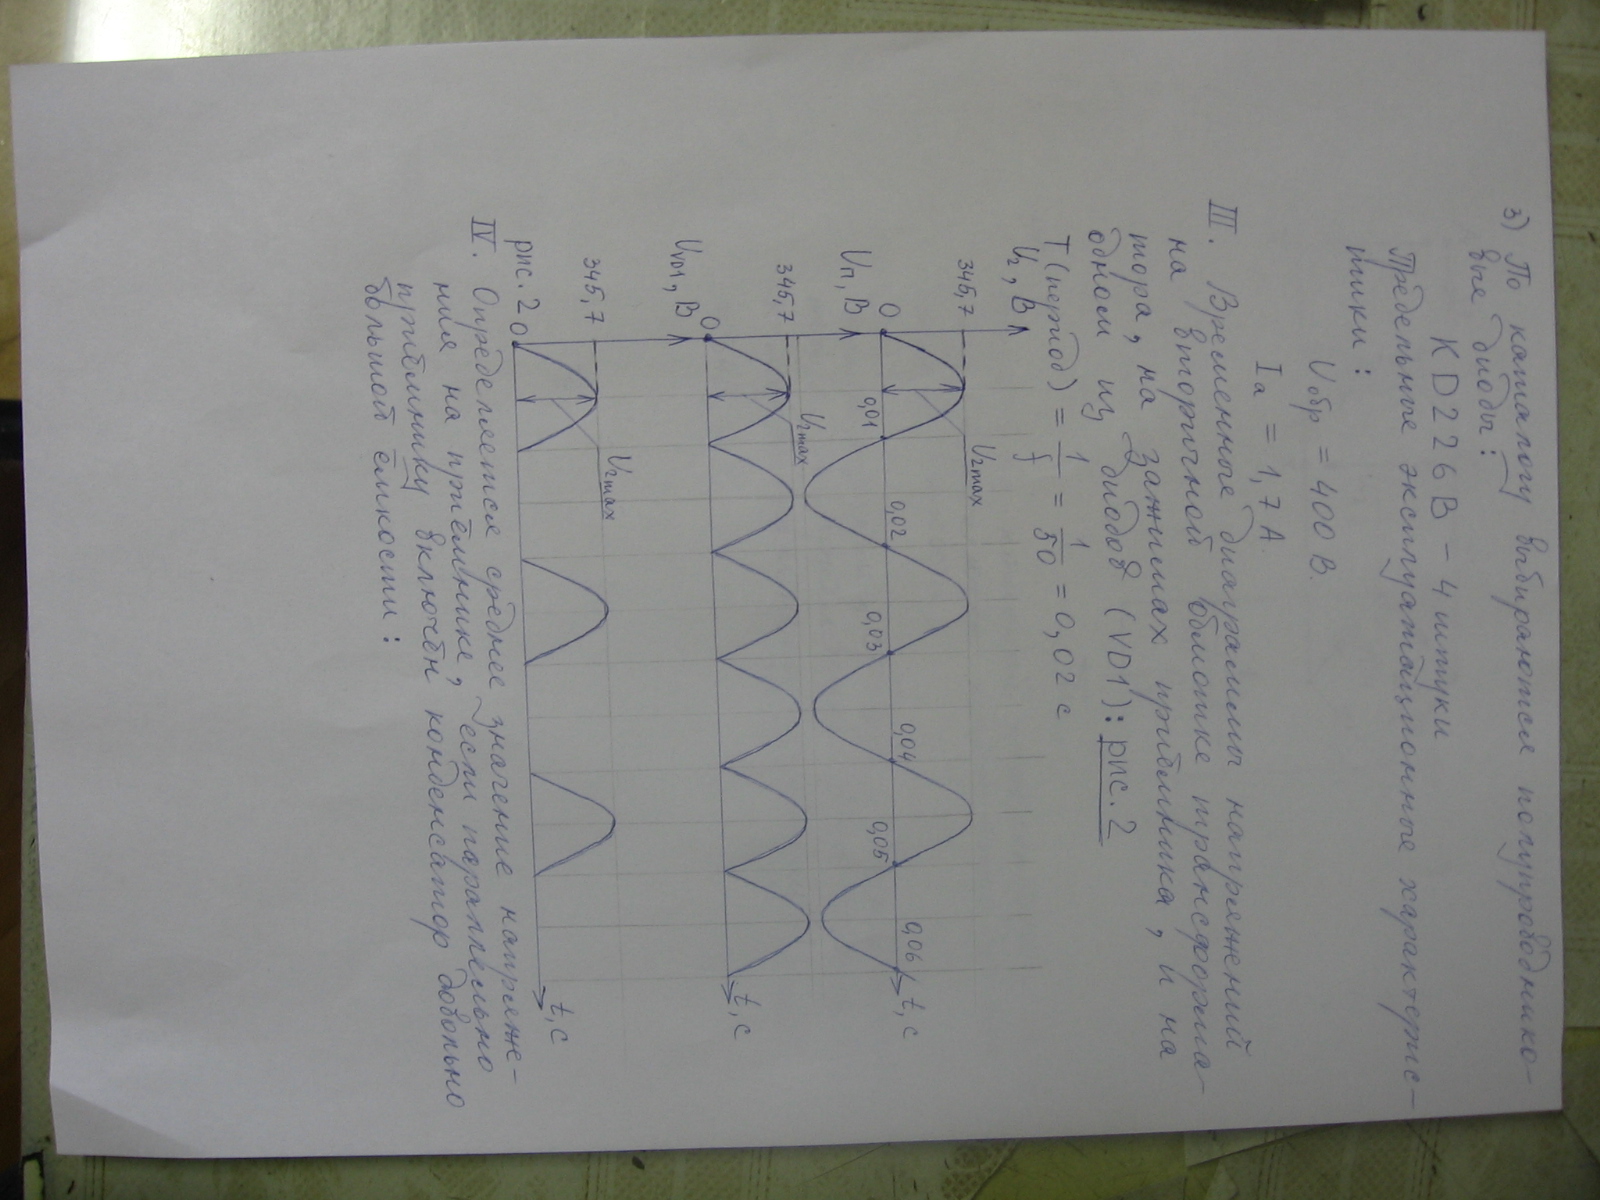 3) По каталогу выбираются полупроводнико-
вые диоды:
КD226В - 4 штуки
Предельные эксплуатационные характерис-
тики:
Uобр = 400 В.
Iа = 1,7 А.
III. Временные диаграммы напряжений
на вторичной обмотке трансформа-
тора, на зажимах приёмника, и на
одном из диодов (VD1): рис. 2
T (период) = 1/f = 1/50 = 0,02 с
U2, В
345,7
U2max
0 0,01 0,02 0,03 0,04 0,05 0,06 t, с
Uп, В
345,7
U2max
0 t, с
UVD1, В
345,7
U2max
рис. 2 0 t, с
IV. Определяется среднее значение напряже-
ния на приёмнике, если параллельно
приёмнику включён конденсатор довольно
большой ёмкости: